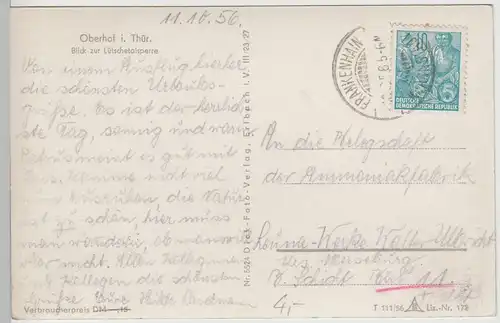 11.10.56.
Oberhof i. Thür.
Blick zur Lütschetalsperre
Von einem Ausflug hierher
die schönsten Urlaubs-
grüße. Es ist der herrlich
ste Tag, sonnig und warm
Petrus meint es gut mit
uns. Komme nicht viel
zum Ausruhen, die Natur
ist zu schön, hier muss
man wandern, ob man will
oder nicht. Allen Kolleginnen
und Kollegen die schönsten
Grüße Eure
Verbraucherpreis DM
Nr. 5524 Dick-Foto-Verlag, Erlbach i. V. III 93 27
FRANKENHAIN
DEUTSCHE
DEMOKRATISCHE REPUBLIK
An die
der Ammoniakfabrik
Leuna-Werke Walter Ulbricht
Merseburg
4,-
T 111/56 Liz.-Nr. 173